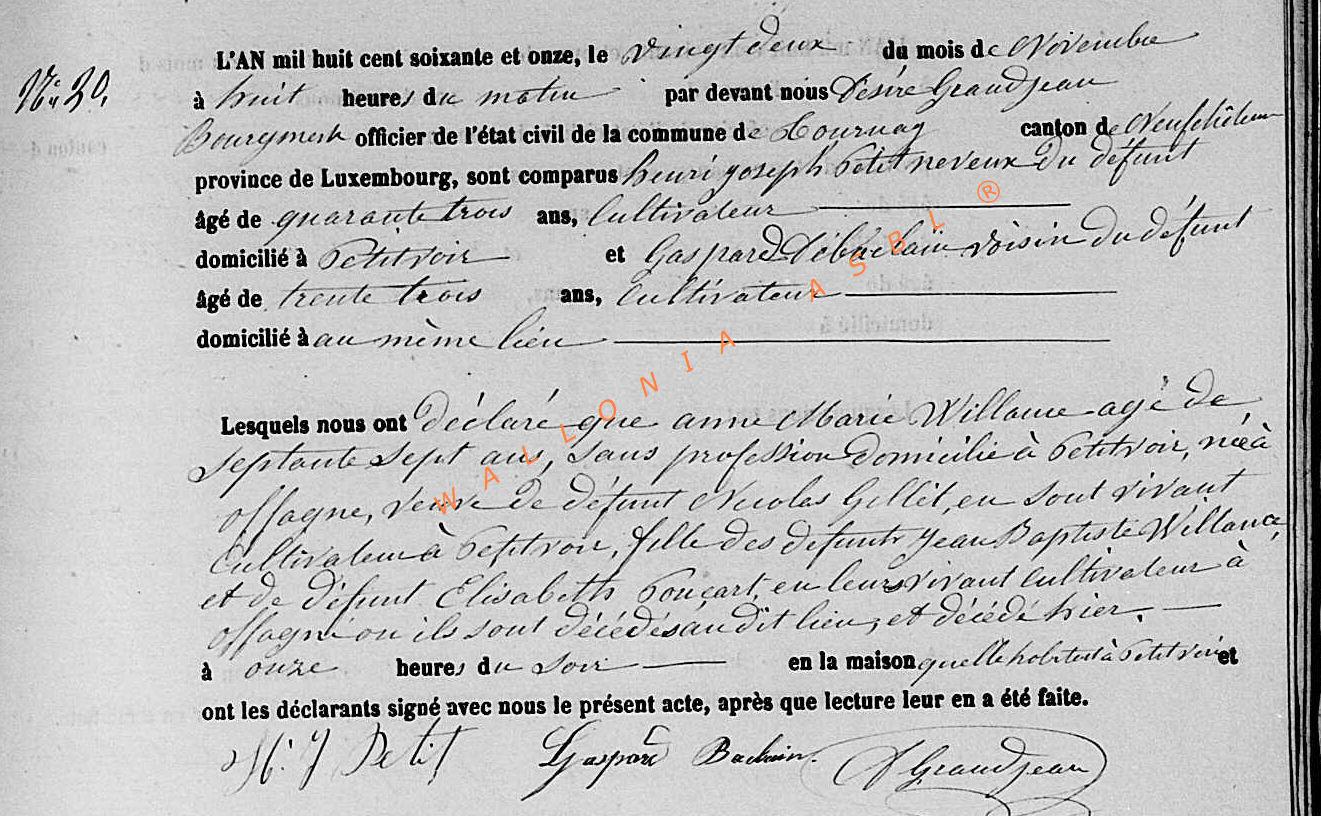 N° 30.
L'AN mil huit cent soixante et onze, le vingt deux du mois de Novembre
à huit heures du matin par devant nous Désiré Grandjean
Bourgmestre officier de l'état civil de la commune de Tournay canton de Neufchâteau
province de Luxembourg, sont comparus henri joseph Petit neveux du défunt
âgé de quarante trois ans, Cultivateur
domicilié à Petitvoir et Gaspard Débachain voisin du défunt
âgé de trente trois ans, Cultivateur
domicilié à au même lieu
Lesquels nous ont déclaré que anne Marie Willame agé de
septante sept ans, sans profession domicilié à Petitvoir, née à
offagne, veuve de défunt Nicolas Gillet, en sont vivant
Cultivateur à Petitvoir, fille des defunts jean Baptiste Willame,
et de défunt Elisabeth Pouçart, en leurs vivant Cultivateur à
offagne ou ils sont décédés audit lieu, et décédé hier.
à onze heures du soir en la maison quelle habitait à Petitvoir et
ont les déclarants signé avec nous le présent acte, après que lecture leur en a été faite.
H. J. Petit Gaspard Bachain. D Grandjean
WALLONIA ASBL ®